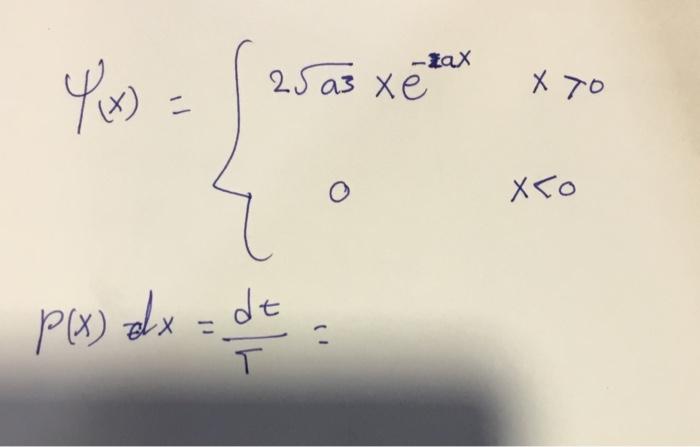 Ψ(x) = { 2√a3 xe^-ax x>0
0 x<0
P(x) dx = dt/T =